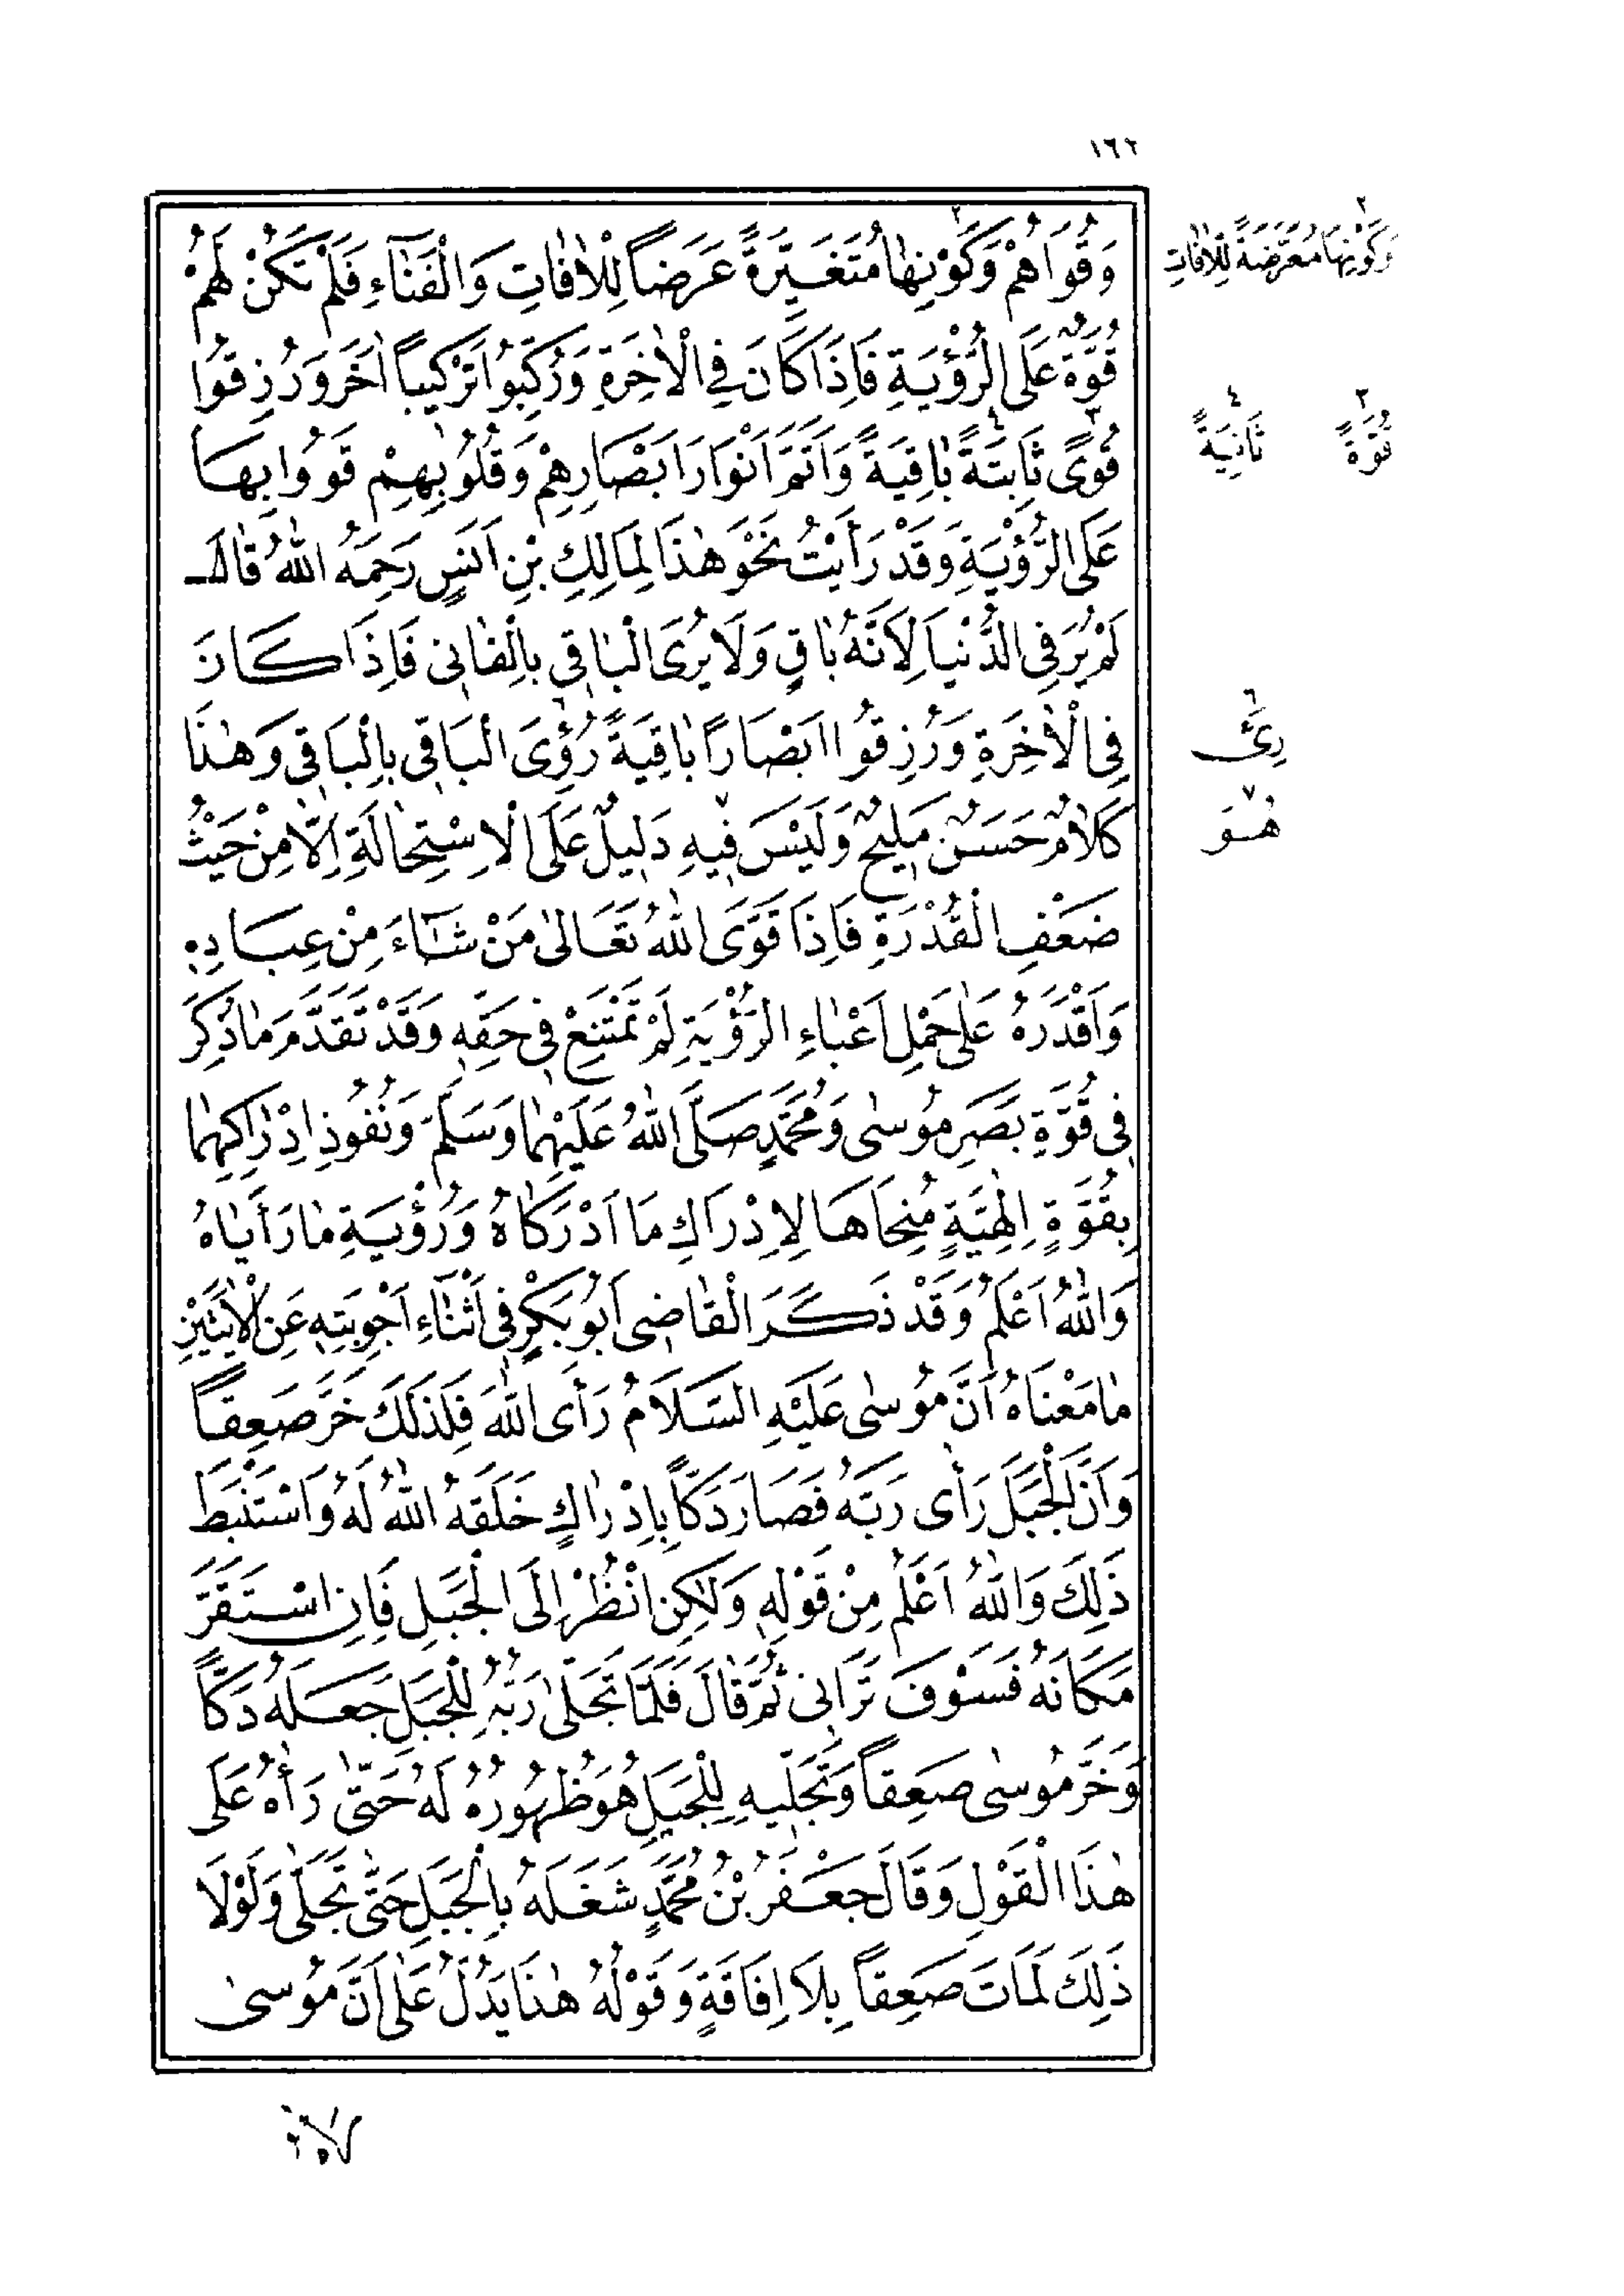 ١٦٢
وَقُوَاهُمْ وَكَوْنِهَا مُتَغَيِّرَةً عَرَضاً لِلْآفَاتِ وَالْفَنَاءِ فَلَمْ تَكُنْ لَهُمْ
قُوَّةٌ عَلَى الرُّؤْيَةِ فَاِذَا كَانَ فِي الْآخِرَةِ وَرُكِّبُوا تَرْكِيباً اٰخَرَ وَرُزِقُوا
قُوًى ثَابِتَةً بَاقِيَةً وَاَتَمَّ اَنْوَارَ اَبْصَارِهِمْ وَقُلُوبِهِمْ قَوُوا بِهَا
عَلَى الرُّؤْيَةِ وَقَدْ رَأَيْتُ نَحْوَ هٰذَا لِمَالِكِ بْنِ اَنَسٍ رَحِمَهُ اللهُ قَالَ
لَمْ يُرَ فِى الدُّنْيَا لِاَنَّهُ بَاقٍ وَلَا يُرَى الْبَاقِى بِالْفَانِى فَاِذَا كَانَ
فِى الْاٰخِرَةِ وَرُزِقُوا اَبْصَارًا بَاقِيَةً رُؤِىَ الْبَاقِى بِالْبَاقِى وَهٰذَا
كَلَامٌ حَسَنٌ مَلِيحٌ وَلَيْسَ فِيهِ دَلِيلٌ عَلَى الْاِسْتِحَالَةِ اِلَّا مِنْ حَيْثُ
ضَعْفِ الْقُدْرَةِ فَاِذَا قَوَّى اللهُ تَعَالٰى مَنْ شَاءَ مِنْ عِبَادِهِ
وَاَقْدَرَهُ عَلٰى حَمْلِ اَعْبَاءِ الرُّؤْيَةِ لَمْ تَمْتَنِعْ فِى حَقِّهِ وَقَدْ تَقَدَّمَ مَا ذُكِرَ
فِى قُوَّةِ بَصَرِ مُوسٰى وَمُحَمَّدٍ صَلَّى اللهُ عَلَيْهِمَا وَسَلَّمَ وَنُفُوذِ اِدْرَاكِهِمَا
بِقُوَّةٍ اِلٰهِيَّةٍ مُنِحَاهَا لِاِدْرَاكِ مَا اَدْرَكَاهُ وَرُؤْيَةِ مَا رَأَيَاهُ
وَاللهُ اَعْلَمُ وَقَدْ ذَكَرَ الْقَاضِى اَبُو بَكْرٍ فِى اَثْنَاءِ اَجْوِبَتِهِ عَنِ الْاٰيَتَيْنِ
مَا مَعْنَاهُ اَنَّ مُوسٰى عَلَيْهِ السَّلَامُ رَأَى اللهَ فَلِذٰلِكَ خَرَّ صَعِقاً
وَاَنَّ الْجَبَلَ رَأٰى رَبَّهُ فَصَارَ دَكّاً بِاِدْرَاكٍ خَلَقَهُ اللهُ لَهُ وَاسْتَنْبَطَ
ذٰلِكَ وَاللهُ اَعْلَمُ مِنْ قَوْلِهِ وَلٰكِنِ انْظُرْ اِلَى الْجَبَلِ فَاِنِ اسْتَقَرَّ
مَكَانَهُ فَسَوْفَ تَرَانِى ثُمَّ قَالَ فَلَمَّا تَجَلّٰى رَبُّهُ لِلْجَبَلِ جَعَلَهُ دَكّاً
وَخَرَّ مُوسٰى صَعِقاً وَتَجَلِّيهِ لِلْجَبَلِ هُوَ ظُهُورُهُ لَهُ حَتّٰى رَأٰهُ عَلَى
هٰذَا الْقَوْلِ وَقَالَ جَعْفَرُ بْنُ مُحَمَّدٍ شَغَلَهُ بِالْجَبَلِ حَتّٰى تَجَلّٰى وَلَوْلَا
ذٰلِكَ لَمَاتَ صَعِقاً بِلَا اِفَاقَةٍ وَقَوْلُهُ هٰذَا يَدُلُّ عَلٰى اَنَّ مُوسٰى
٢ وَكَوْنِهَا مُعَرَّضَةً لِلْآفَاتِ
٣ قُوَّةً ٤ ثَانِيَةً
٦ رِئَى
٧ هُوَ